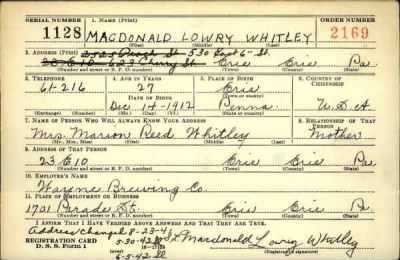 SERIAL NUMBER 1. NAME (Print) ORDER NUMBER
1128 MACDONALD LOWRY WHITLEY 2169
(First) (Middle) (Last)
2. ADDRESS (Print) 2525 Peach St 530 East 6" St.
23 E 10 623 Cherry St. Erie Erie Pa.
(Number and street or R. F. D. number) (Town) (County) (State)
3. TELEPHONE 4. AGE IN YEARS 5. PLACE OF BIRTH 6. COUNTRY OF CITIZENSHIP
61-216 27 Erie
DATE OF BIRTH (Town or county)
Dec 14 1912 Penna. U.S.A
(Exchange) (Number) (Mo.) (Day) (Yr.) (State or country)
7. NAME OF PERSON WHO WILL ALWAYS KNOW YOUR ADDRESS 8. RELATIONSHIP OF THAT PERSON
Mrs. Marion Reed Whitley Mother
(Mr., Mrs., Miss) (First) (Middle) (Last)
9. ADDRESS OF THAT PERSON
23 E 10 Erie Erie Pa.
(Number and street or R. F. D. number) (Town) (County) (State)
10. EMPLOYER'S NAME
Wayne Brewing Co.
11. PLACE OF EMPLOYMENT OR BUSINESS
1701 Parade St. Erie Erie Pa
(Number and street or R. F. D. number) (Town) (County) (State)
I AFFIRM THAT I HAVE VERIFIED ABOVE ANSWERS AND THAT THEY ARE TRUE.
Address Changed 8-23-41
REGISTRATION CARD 5-30-42 Macdonald Lowry Whitley
D. S. S. Form 1
6-5-42